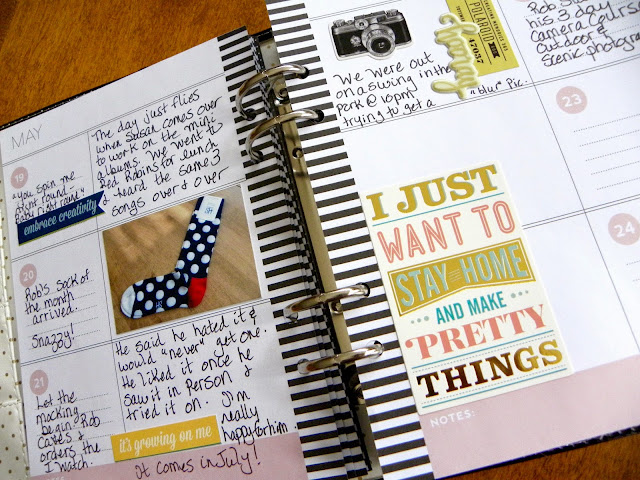 MAY
19
"You spin me
right round
baby right round"
embrace creativity
The day just flies
when Susan comes over
to work on the mini
albums. We went to
Red Robins for lunch
& heard the same 3
songs over & over
20
Rob's sock of
the month
arrived.
Snazzy!
21
Let the
mocking
begin. Rob
caves &
orders the
I watch.
He said he hated it &
would "never" get one.
He liked it once he
saw it in person &
tried it on.
I'm
really
happy for him.
it's growing on me
It comes in July!
We were out
on a swing in the
park @ 10pm
trying to get a
"blur" pic.
POLAROID
47037
Rob
his 3 day
Camera Course
Outdoor &
Scenic photography
23
24
I JUST
WANT TO
STAY HOME
AND MAKE
PRETTY
THINGS
NOTES: